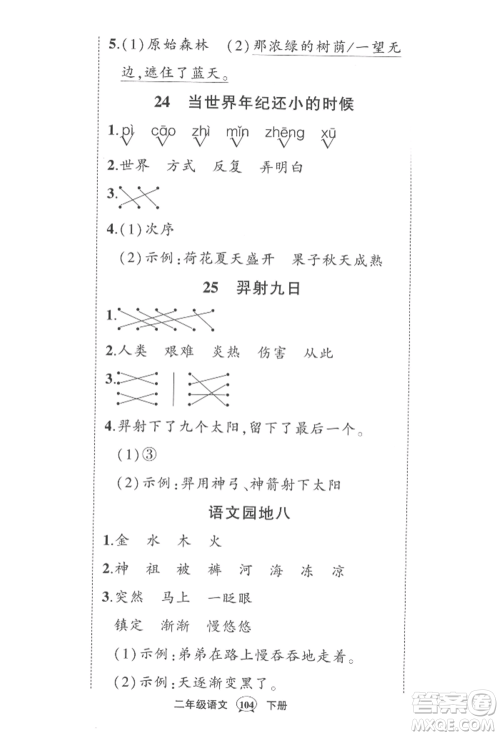 5.(1)原始森林 (2)那浓绿的树荫/一望无
边,遮住了蓝天。
24 当世界年纪还小的时候
1.pì cāo zhì mǐn zhēng xū
2.世界 方式 反复 弄明白
3.
4.(1)次序
(2)示例:荷花夏天盛开 果子秋天成熟
25 羿射九日
1.
2.人类 艰难 炎热 伤害 从此
3.
4.羿射下了九个太阳,留下了一个太阳。
(1)③
(2)示例:羿用神弓、神箭射下太阳
语文园地八
1.金 水 木 火
2.神 祖 被 裤 河 海 冻 凉
3.突然 马上 一眨眼
镇定 渐渐 慢悠悠
(1)示例:弟弟在路上慢吞吞地走着。
(2)示例:天逐渐变黑了。
二年级语文 104 下册
答案圈
MXQE.COM